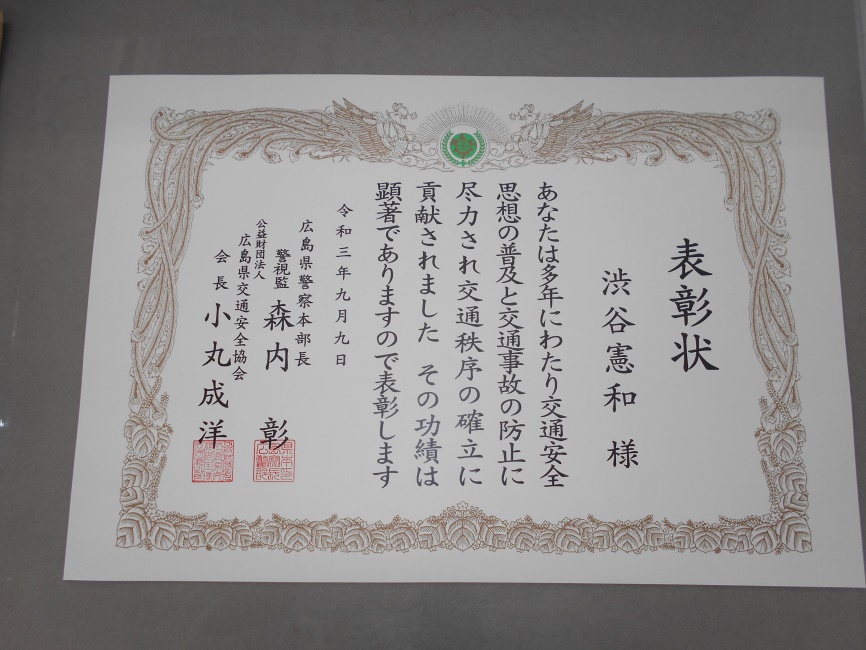 表彰状
渋谷憲和 様
あなたは多年にわたり交通安全
思想の普及と交通事故の防止に
尽力され交通秩序の確立に
貢献されました その功績は
顕著でありますので表彰します
令和三年九月九日
広島県警察本部長
警視監 森内 彰
公益財団法人
広島県交通安全協会
会長 小丸成洋